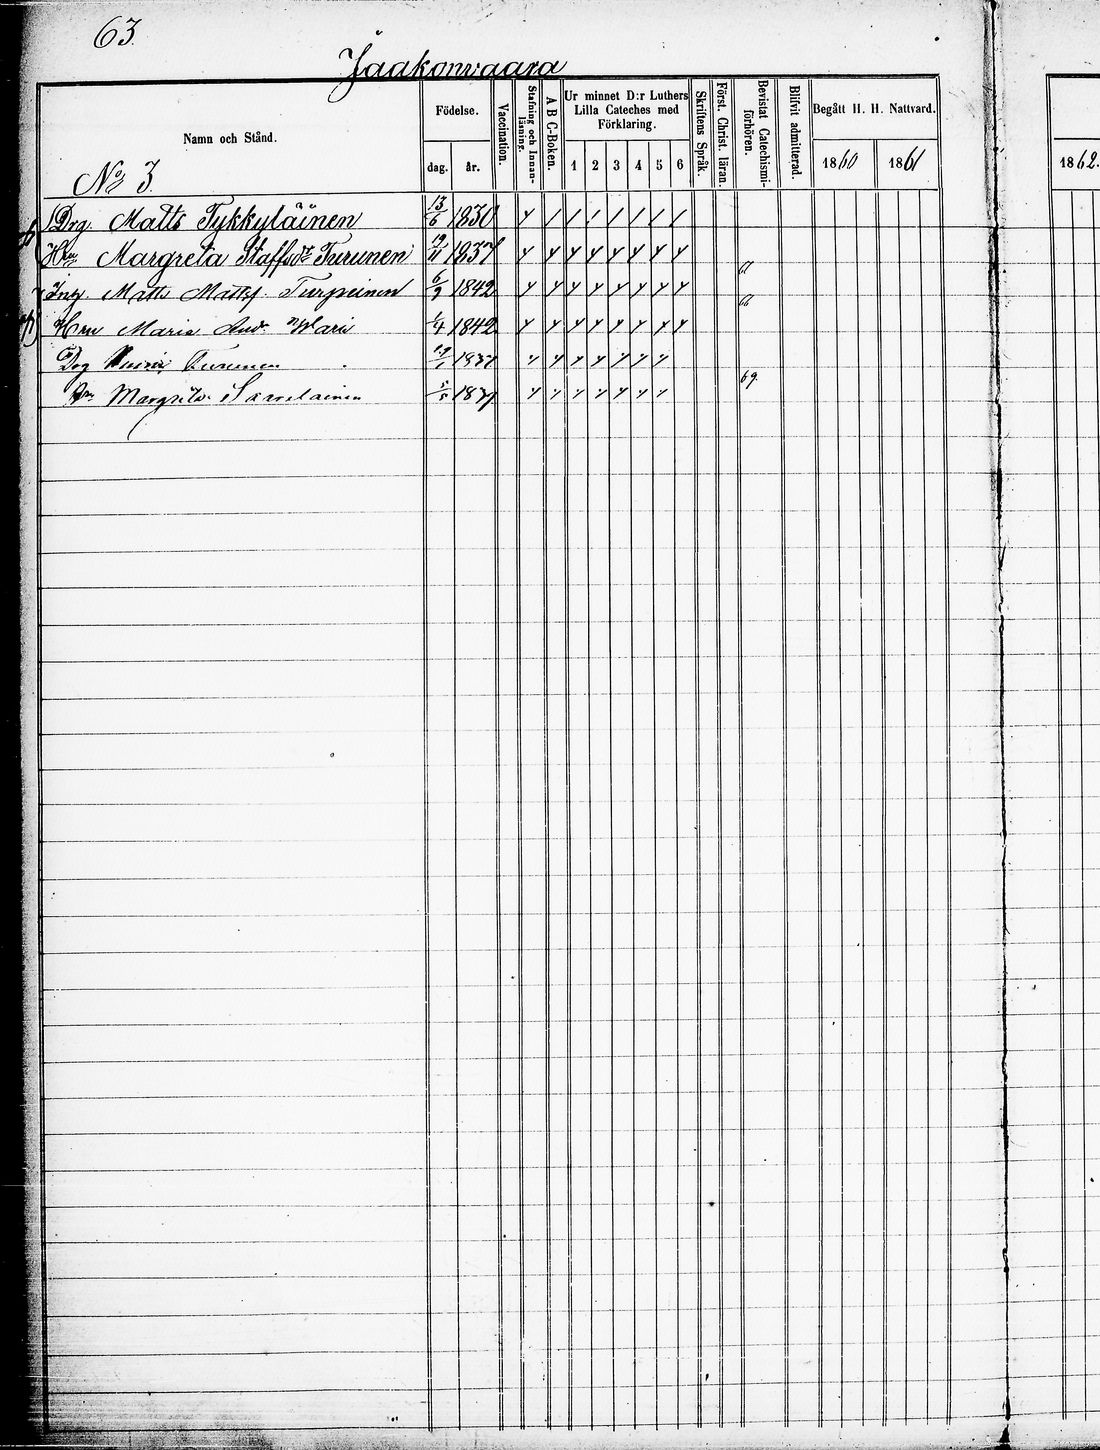 63.
Jaakonvaara
Namn och Stånd.
No 3.
Födelse.
dag. år.
Vaccination.
Stafning och Innanläsning.
A B C-Boken.
Ur minnet D:r Luthers Lilla Cateches med Förklaring.
1 2 3 4 5 6
Skriftens Språk.
Först. Christ. läran.
Bevistat Catechismiförhören.
Blifvit admitterad.
Begått H. H. Nattvard.
1860 1861
1862.
Drg. Matts Tykkyläinen 13/6 1830
Hm Margreta Staffsdr Turunen 1837
Inh. Matts Mattsf. Turpeinen 6/9 1842
Hm Maria And. Wari 1/4 1842
Drg Turunen 1837
Hm Margreta Sarelainen 5/5 1837
69.